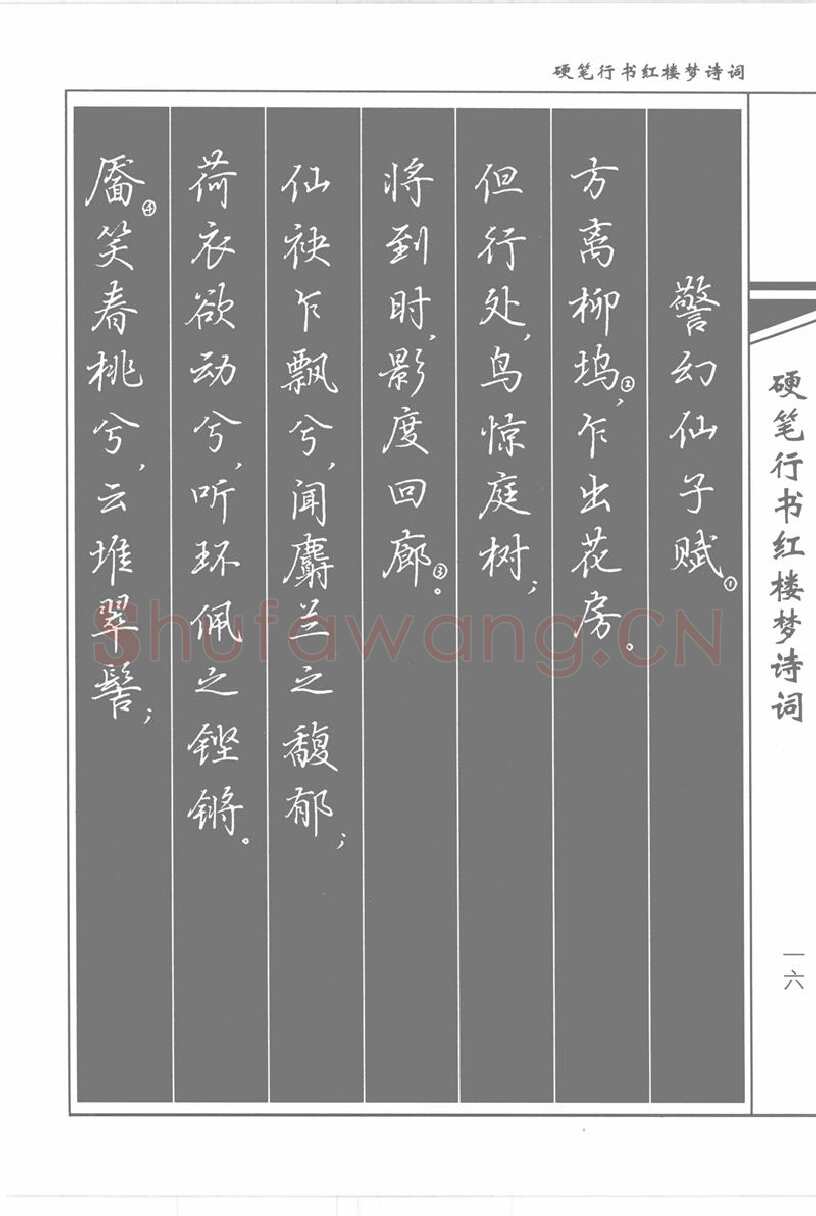 硬笔行书红楼梦诗词
警幻仙子赋①
方离柳坞②,乍出花房。
但行处,鸟惊庭树;
将到时,影度回廊③。
仙袂乍飘兮,闻麝兰之馥郁;
荷衣欲动兮,听环佩之铿锵。
靥④笑春桃兮,云堆翠髻;
硬笔行书红楼梦诗词
一六
Shufawang.CN